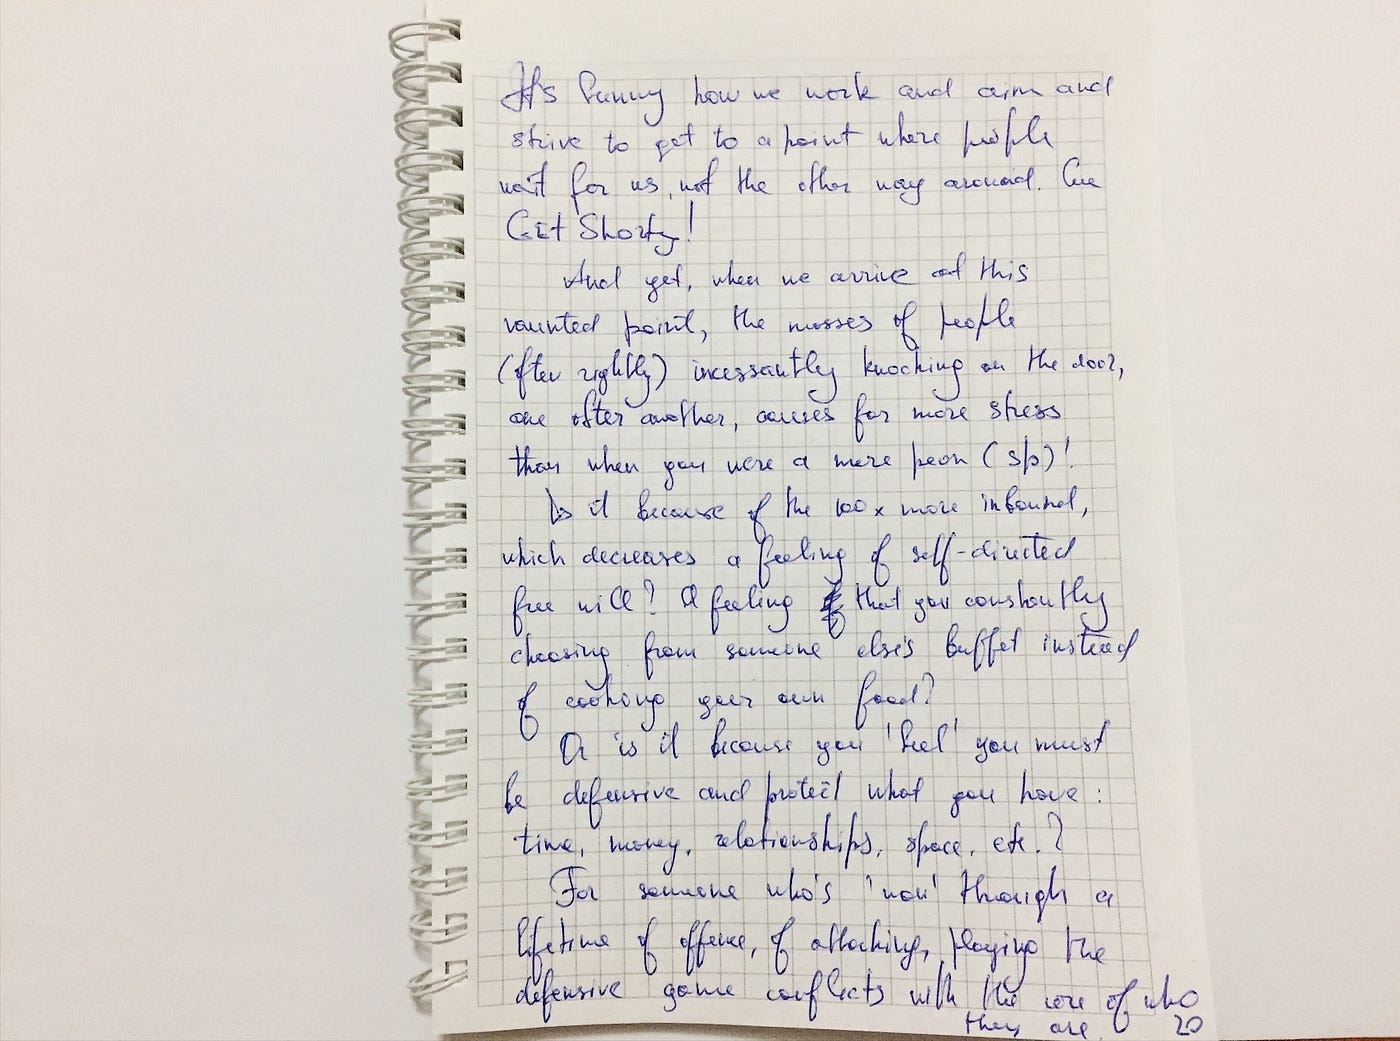 It's funny how we work and aim and
strive to get to a point where people
wait for us, not the other way around. Cue
Get Shorty!
And yet, when we arrive at this
vaunted point, the masses of people
(often rightly) incessantly knocking on the door,
one after another, causes far more stress
than when you were a mere peon (sp)!
Is it because of the 100x more inbound,
which decreases a feeling of self-directed
free will? A feeling that you constantly
choosing from someone else's buffet instead
of cooking your own food?
Or is it because you 'feel' you must
be defensive and protect what you have:
time, money, relationships, space, etc.?
For someone who's 'won' through a
lifetime of offence, of attacking, playing the
defensive game conflicts with the core of who
they are
20